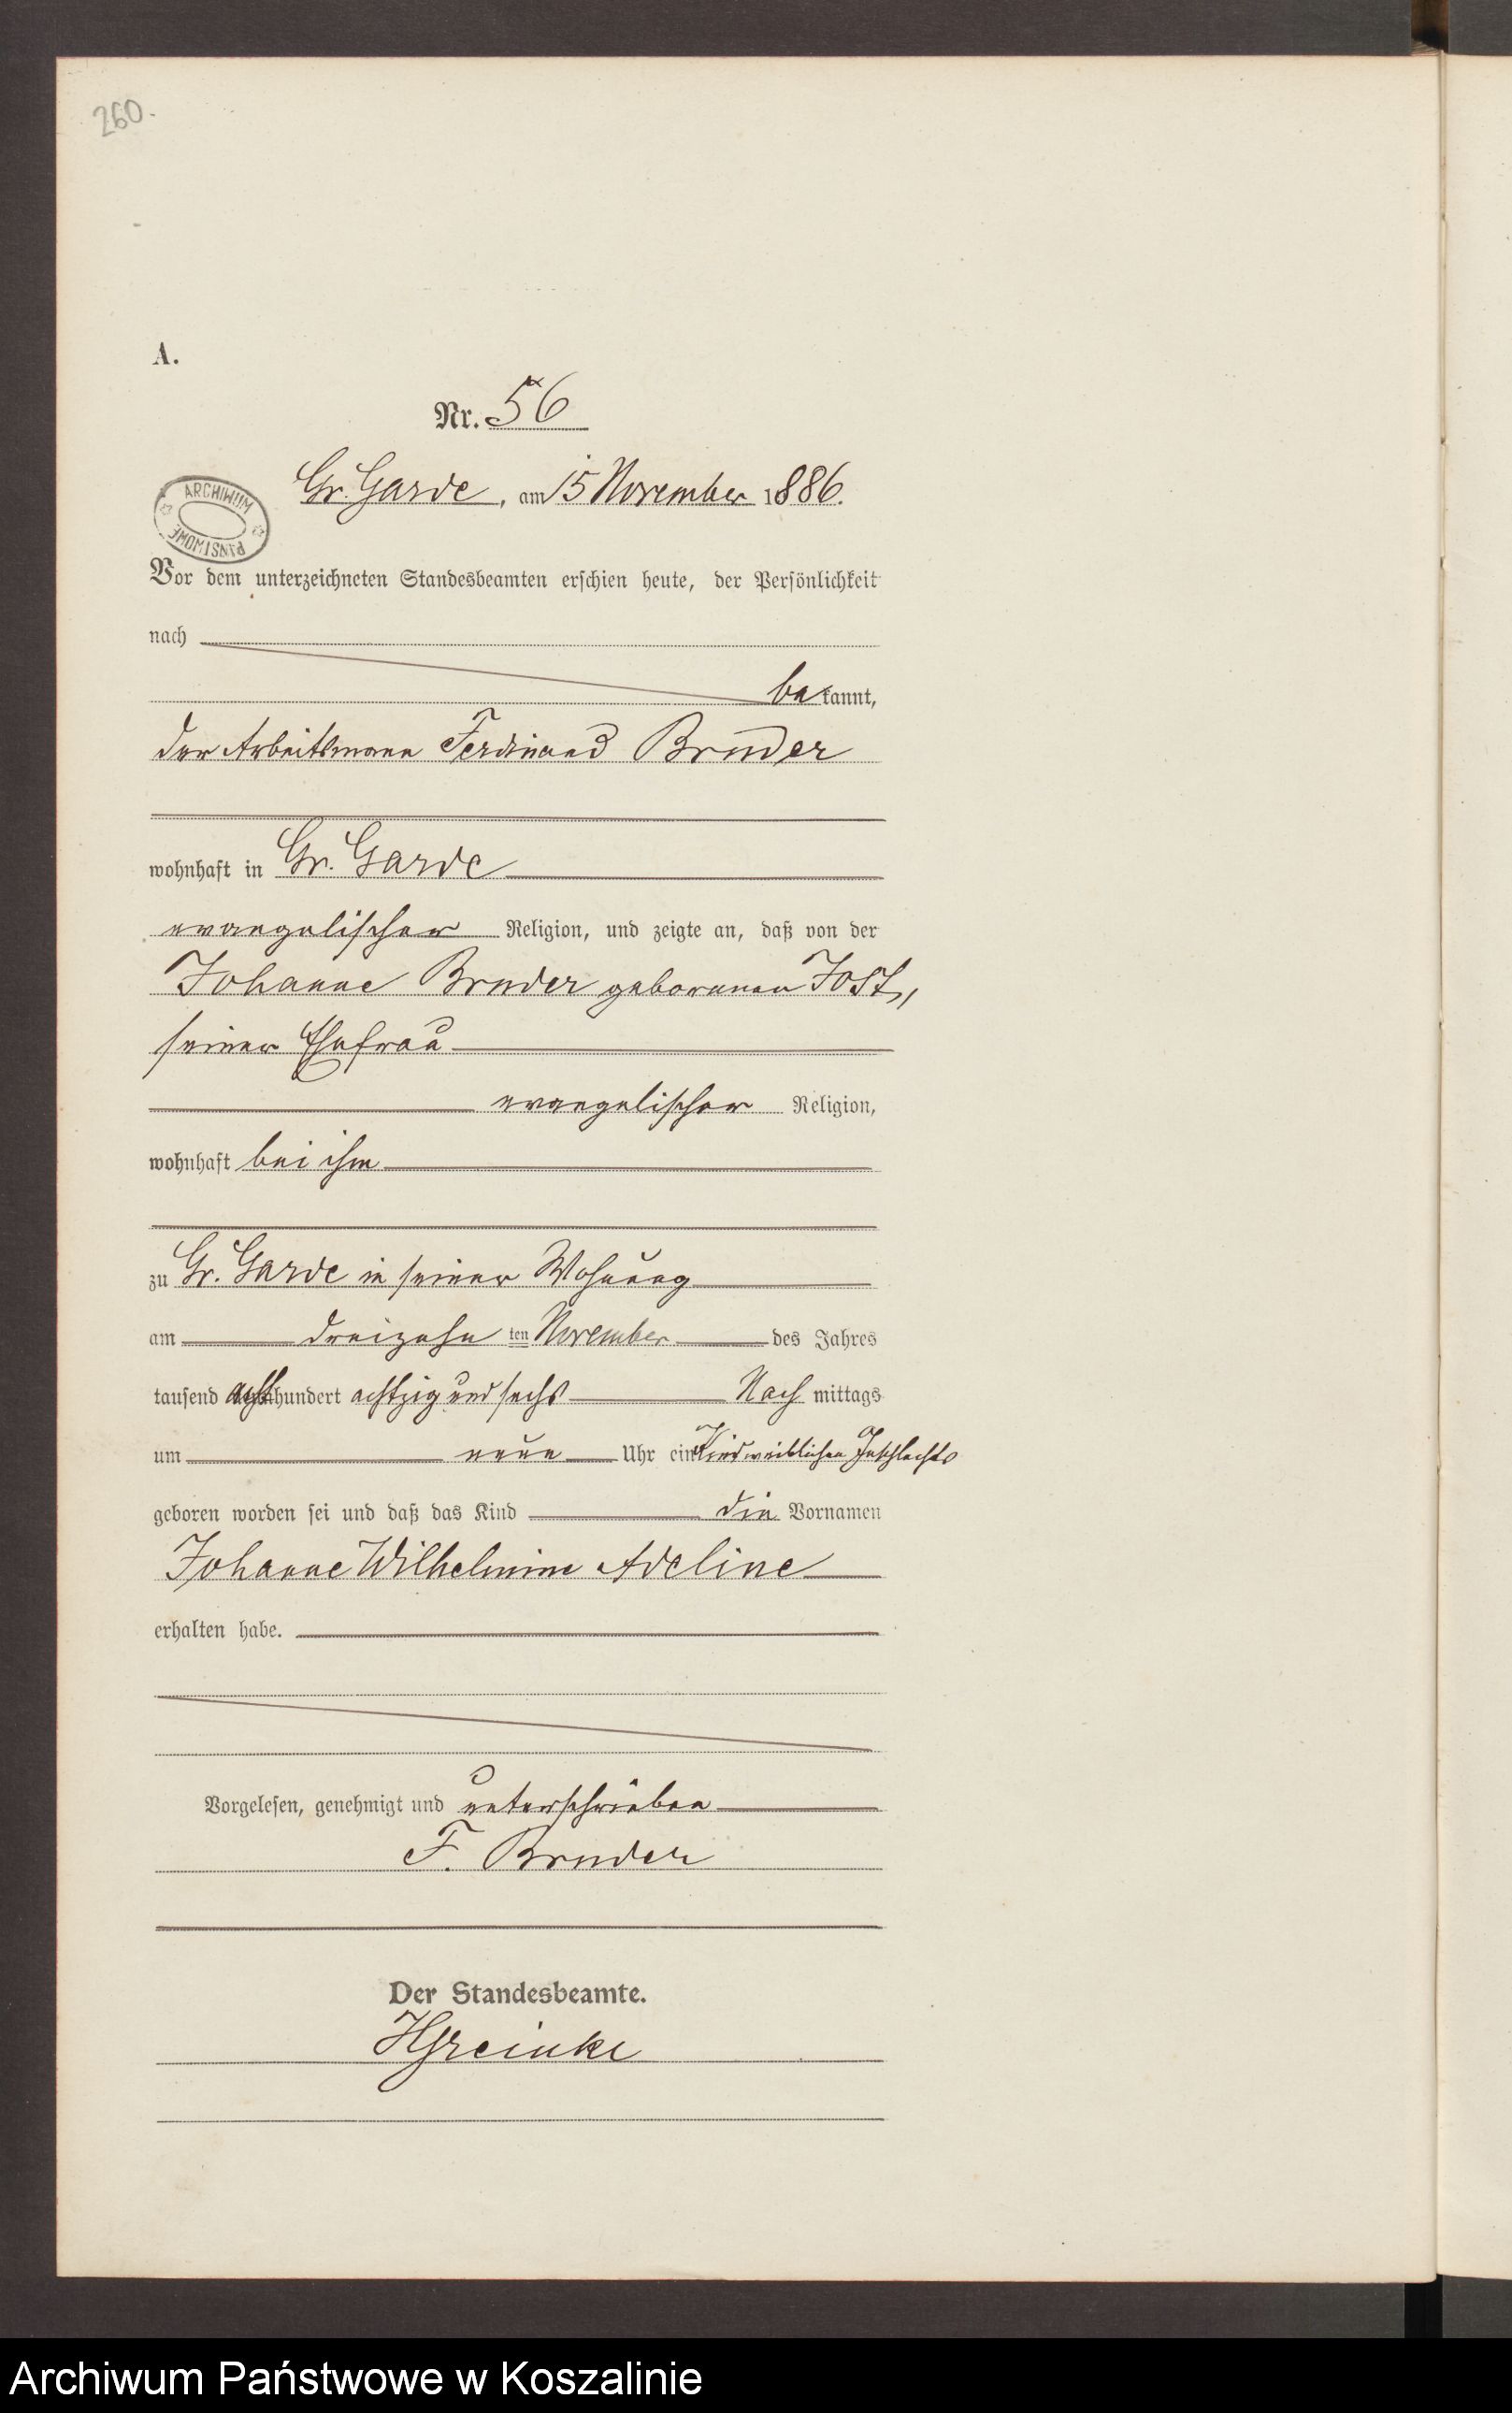 260.
A.
Nr. 56
Gr. Garde, am 15 November 1886.
ARCHIWUM PAŃSTWOWE
Vor dem unterzeichneten Standesbeamten erschien heute, der Persönlichkeit
nach
bekannt,
der Arbeitsmann Ferdinand Bruder
wohnhaft in Gr. Garde
evangelischer Religion, und zeigte an, daß von der
Johanne Bruder geborenen Jost,
seiner Ehefrau
evangelischer Religion,
wohnhaft bei ihm
zu Gr. Garde in seiner Wohnung
am dreizehn ten November des Jahres
tausend achthundert achtzig und sechs Nach mittags
um neun Uhr ein Kind weiblichen Geschlechts
geboren worden sei und daß das Kind die Vornamen
Johanne Wilhelmine Adeline
erhalten habe.
Vorgelesen, genehmigt und unterschrieben
F. Bruder
Der Standesbeamte.
Archiwum Państwowe w Koszalinie